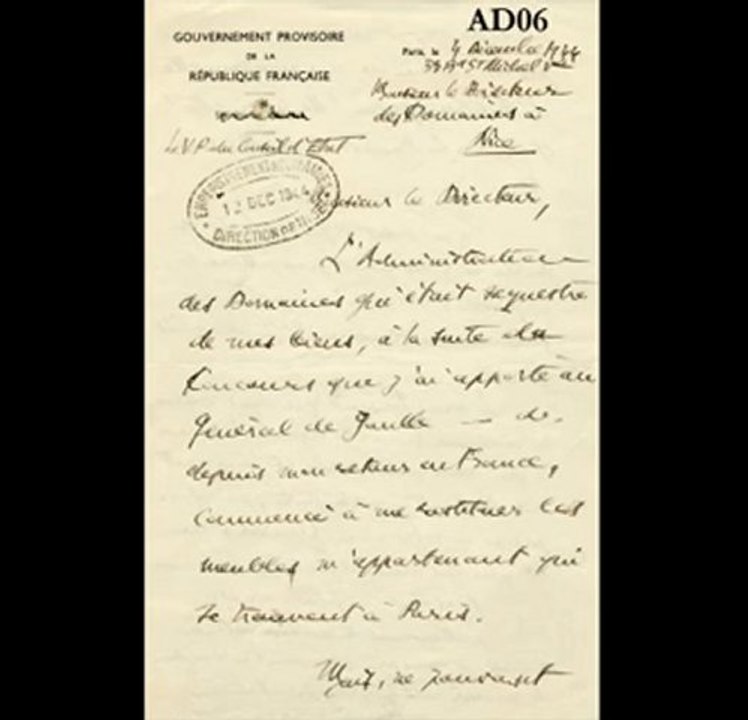 AD06
GOUVERNEMENT PROVISOIRE
DE LA
RÉPUBLIQUE FRANÇAISE
Paris, le 4 décembre 1944
Monsieur le Directeur
des Domaines à
Nice
Le V.P. du Conseil d'Etat
ENREGISTREMENT
12 DEC 1944
DIRECTION DE
Monsieur le Directeur,
L'Administration
des Domaines qui était sequestre
de mes biens, à la suite du
concours que j'ai apporté au
Général de Gaulle — a
depuis mon retour en France,
commencé à me restituer les
meubles m'appartenant qui
se trouvent à Paris.
Mais, ne pouvant